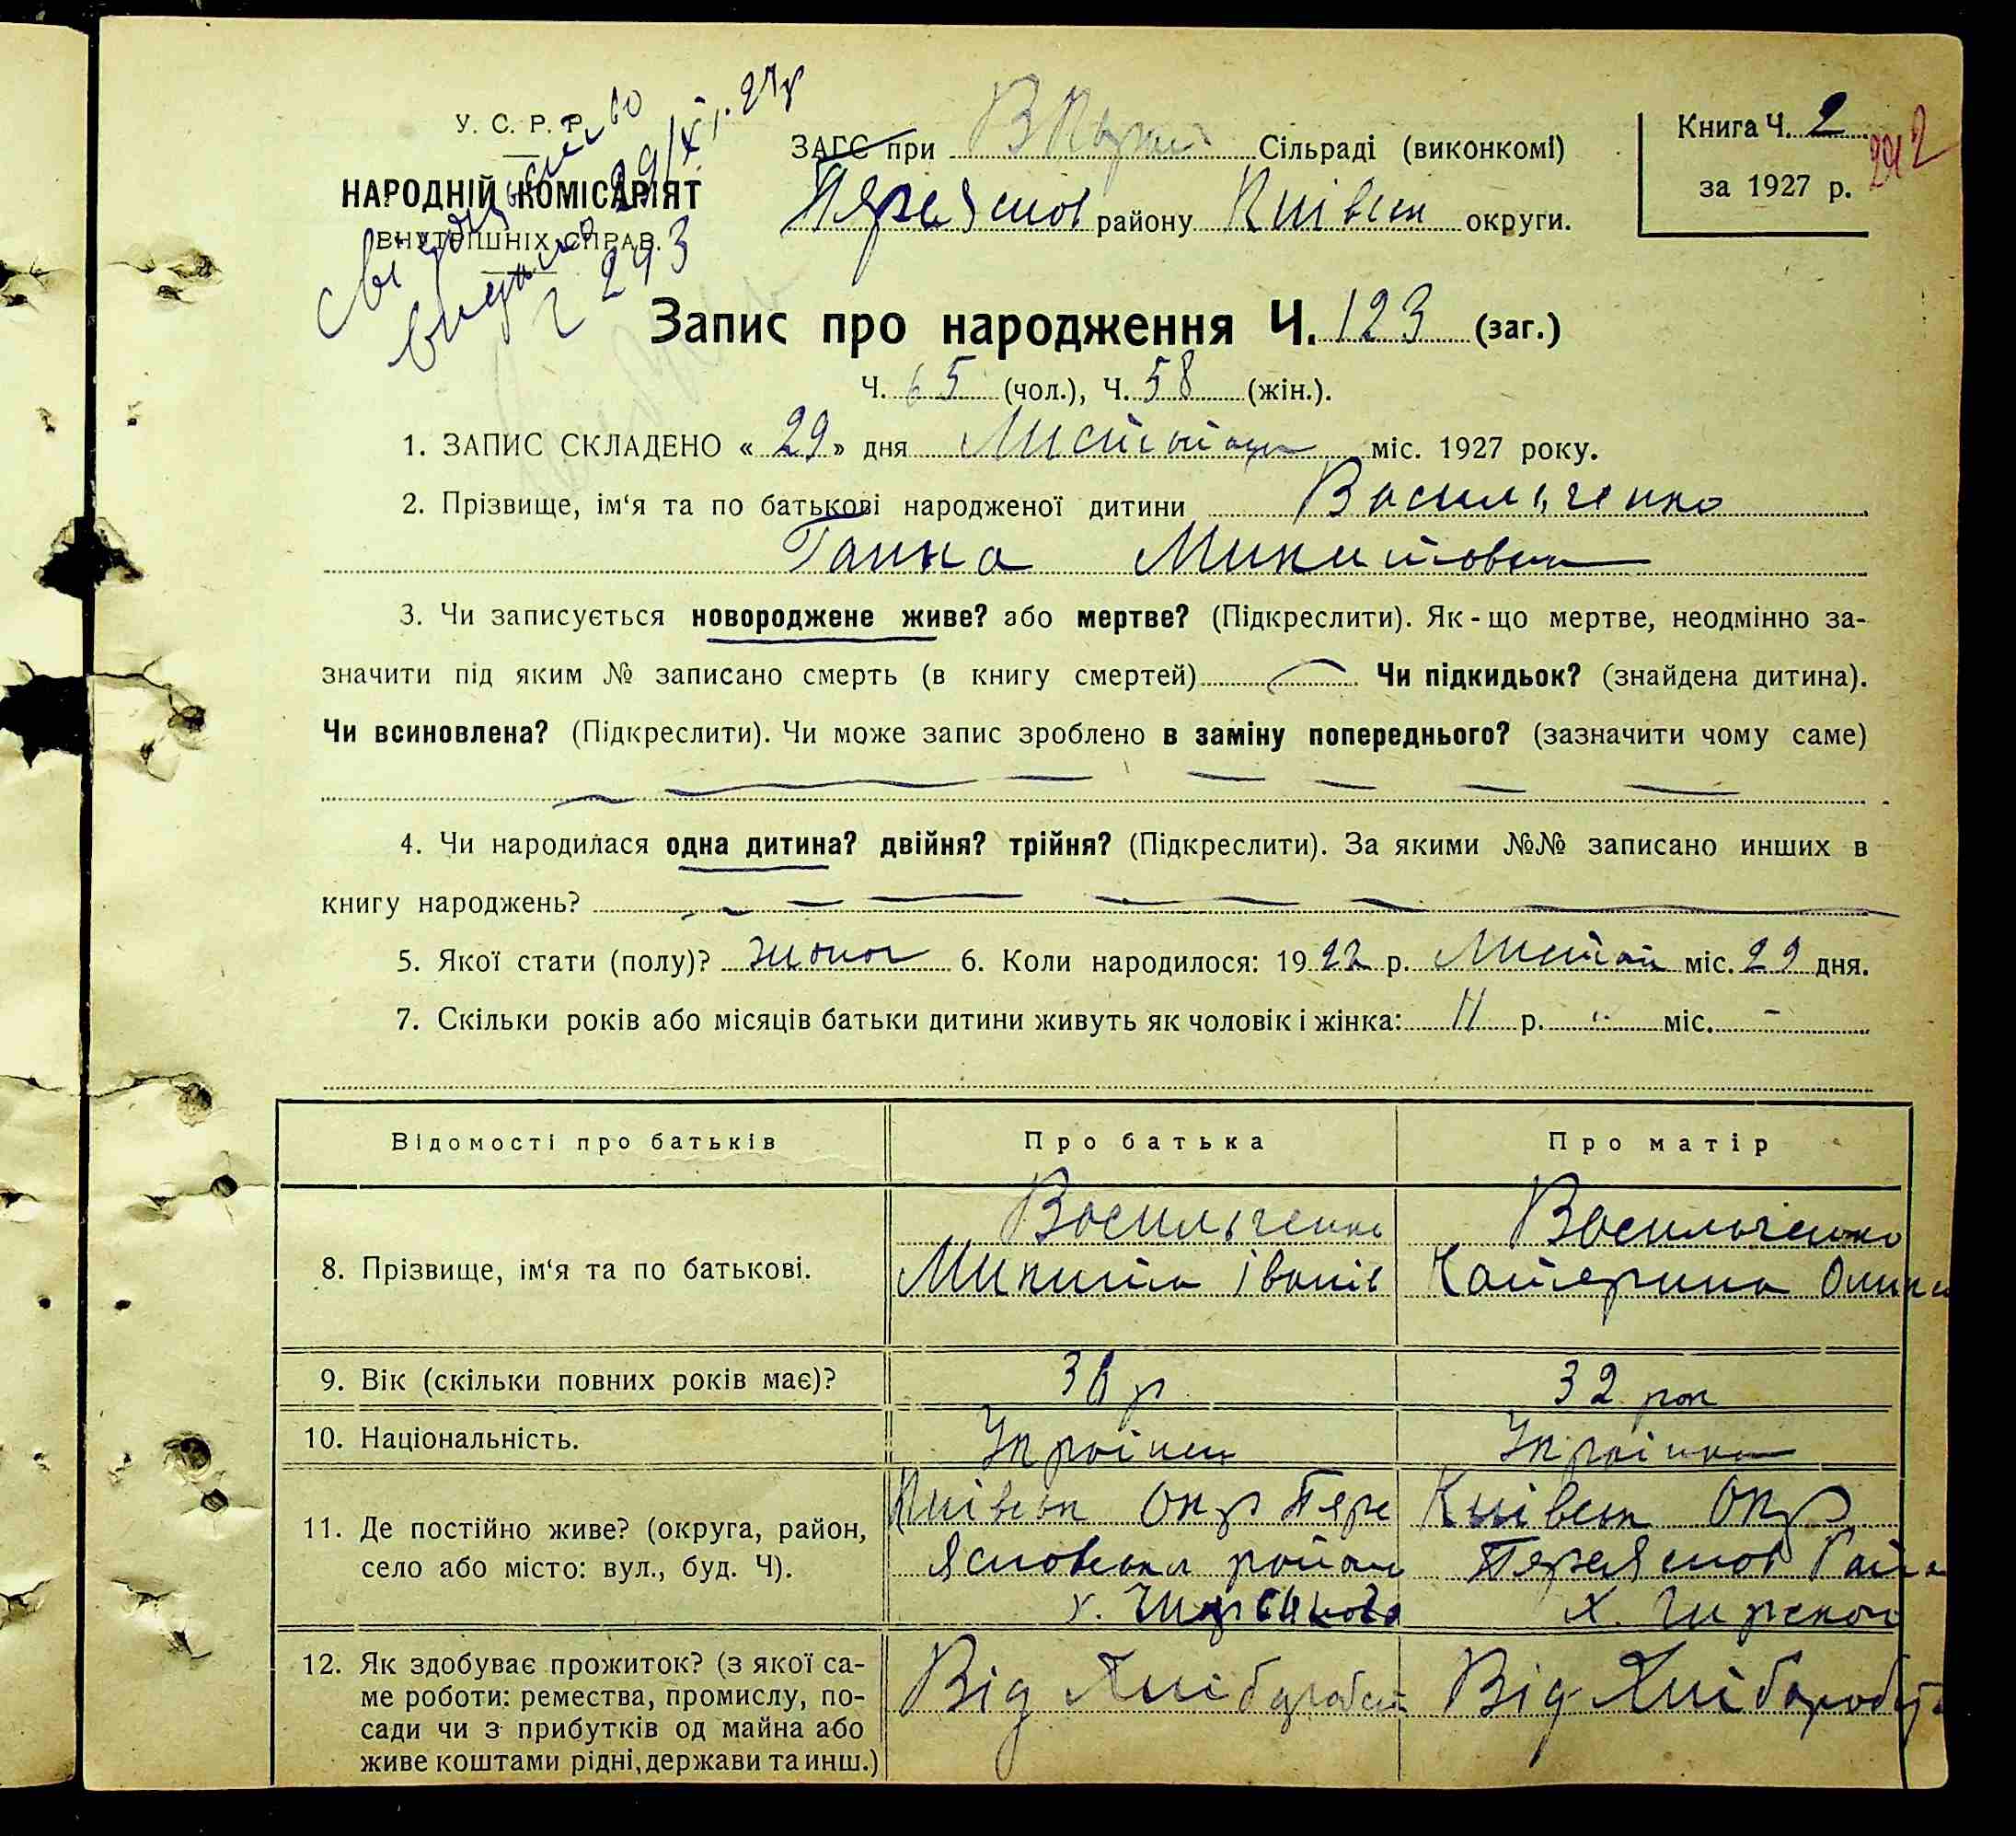 У. С. Р. Р.
НАРОДНІЙ КОМІСАРІЯТ
ВНУТРІШНІХ СПРАВ.
видано 29/XI. 27 р
293
ЗАГС при Сільраді (виконкомі)
Переяслов району Київськ округи.
Книга Ч. 2
за 1927 р.
Запис про народження Ч. 123 (заг.)
Ч. 65 (чол.), Ч. 58 (жін.).
1. ЗАПИС СКЛАДЕНО « 29 » дня Листопада міс. 1927 року.
2. Прізвище, ім'я та по батькові народженої дитини Васильченко
Ганна Микитовна
3. Чи записується новороджене живе? або мертве? (Підкреслити). Як-що мертве, неодмінно за-
значити під яким № записано смерть (в книгу смертей) Чи підкидьок? (знайдена дитина).
Чи всиновлена? (Підкреслити). Чи може запис зроблено в заміну попереднього? (зазначити чому саме)
4. Чи народилася одна дитина? двійня? трійня? (Підкреслити). За якими №№ записано инших в
книгу народжень?
5. Якої стати (полу)? жіноч 6. Коли народилося: 1927 р. Листоп міс. 29 дня.
7. Скільки років або місяців батьки дитини живуть як чоловік і жінка: 11 р. " міс. -
Відомості про батьків Про батька Про матір
8. Прізвище, ім'я та по батькові. Васильченко Васильченко
Микита Іванів Катерина
9. Вік (скільки повних років має)? 36 р 32 рок
10. Національність. Українец Україинка
11. Де постійно живе? (округа, район,
село або місто: вул., буд. Ч).
Київськ Окр Пере
Ясловськ район
Київськ Окр
ПереЯслов Райо
х. Чирсково
12. Як здобуває прожиток? (з якої са-
ме роботи: ремества, промислу, по-
сади чи з прибутків од майна або
живе коштами рідні, держави та инш.)
Від Хліборобст Від Хліборобст